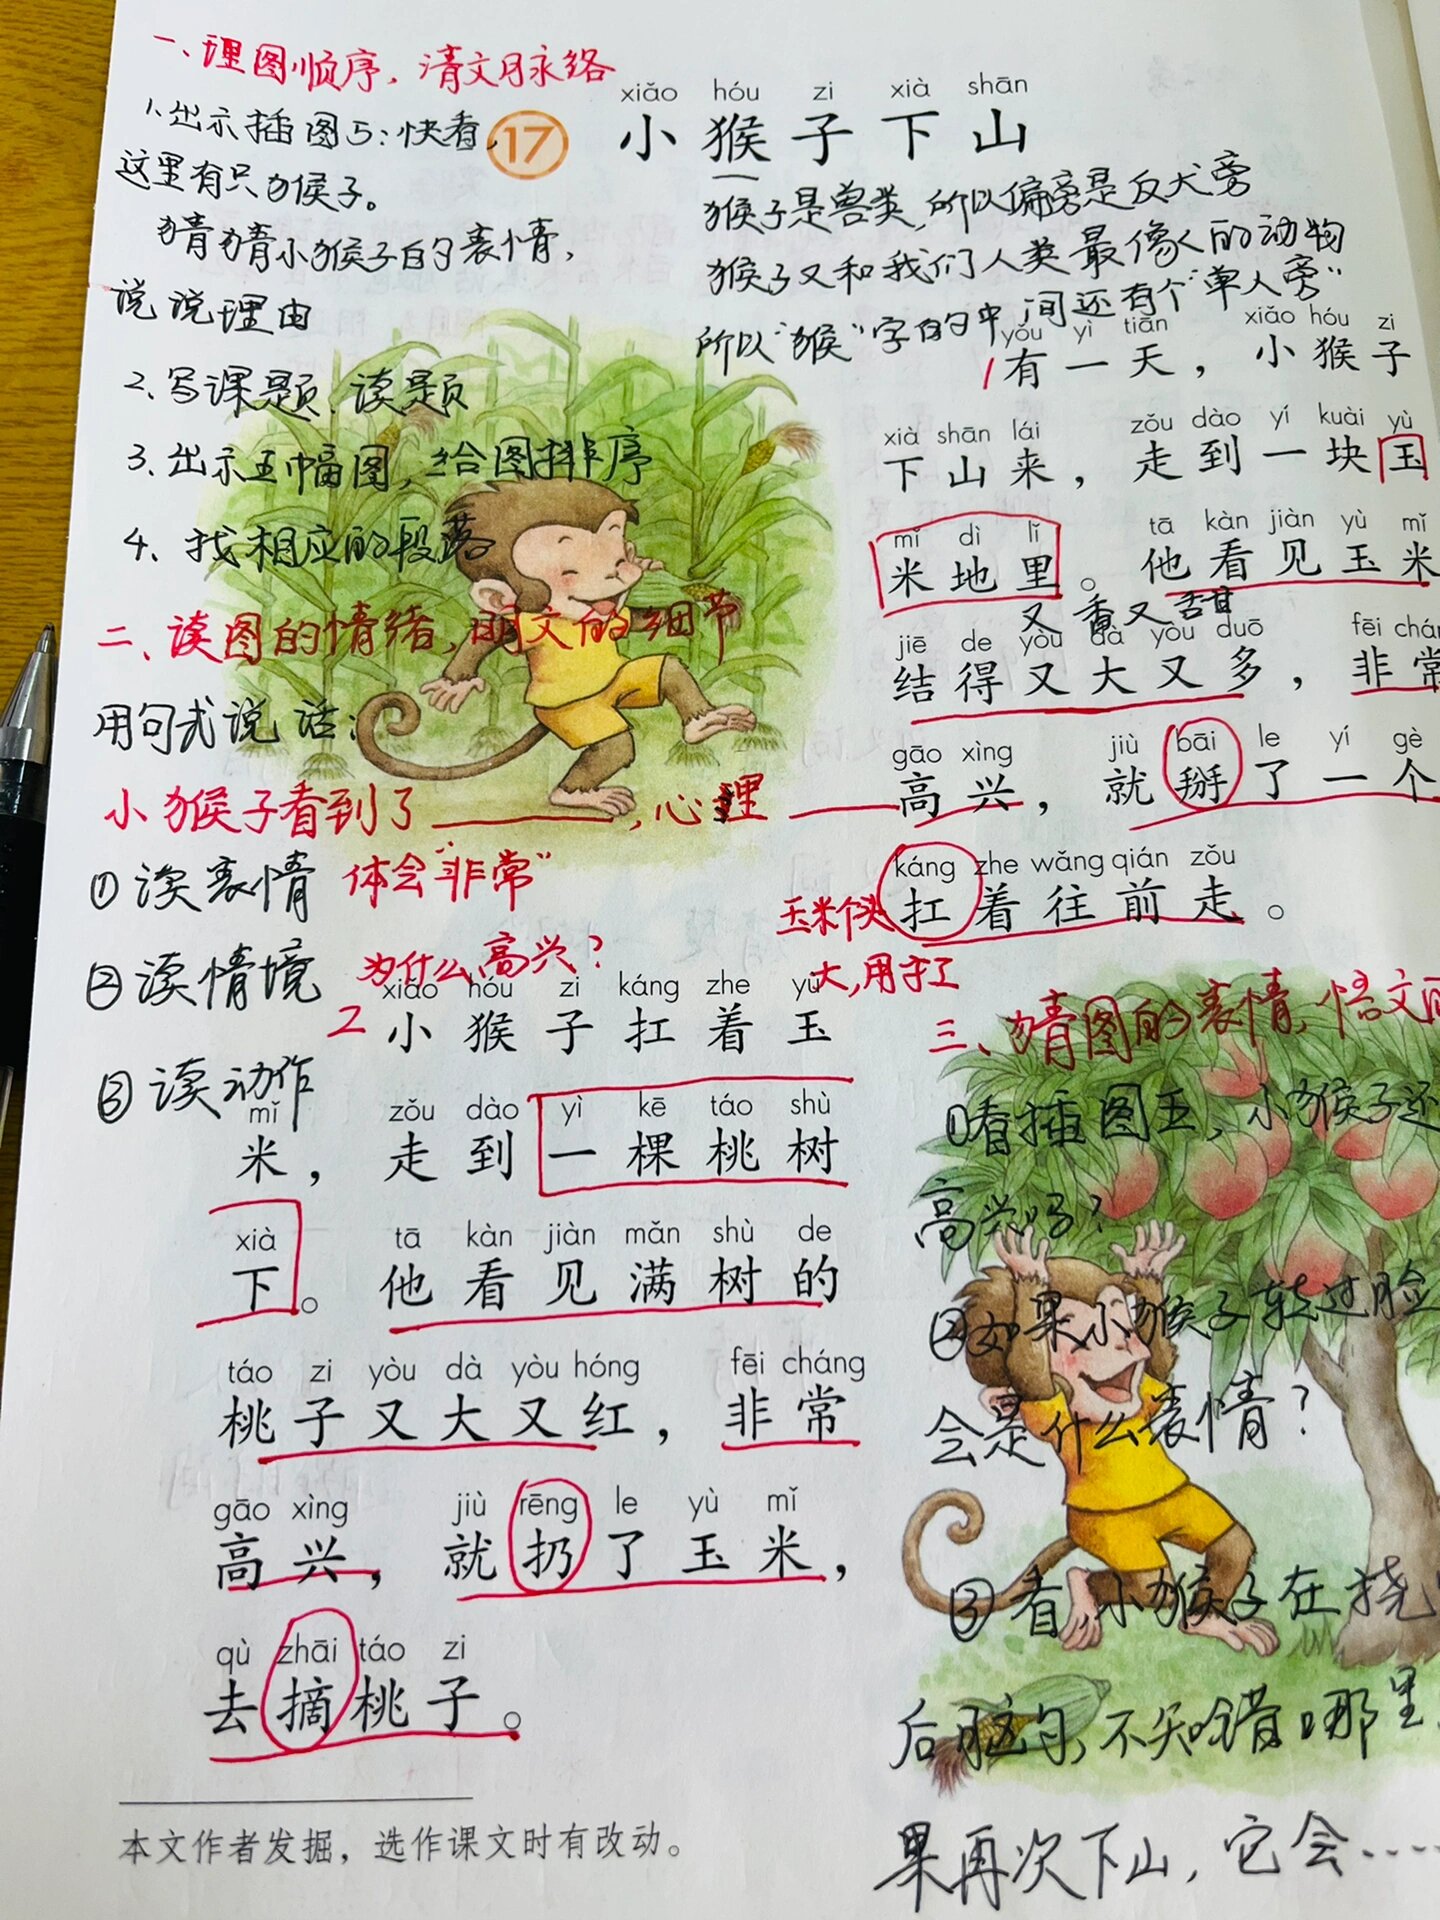 一、理图顺序，清文脉络
1.出示插图5：快看，
这里有只猴子。
猜猜小猴子的表情，
说说理由
2、写课题、读题
3、出示五幅图，给图排序
4、找相应的段落
二、读图的情绪，明文的细节
用句式说话：
小猴子看到了______，心理____
①读表情 体会“非常”
②读情境 为什么高兴？
③读动作
17
xiǎo hóu zi xià shān
小猴子下山
猴子是兽类，所以偏旁是反犬旁
猴子又和我们人类最像人的动物
所以“猴”字的中间还有个“单人旁”
yǒu yì tiān xiǎo hóu zi
1 有一天，小猴子
xià shān lái zǒu dào yí kuài yù
下山来，走到一块玉
mǐ dì lǐ tā kàn jiàn yù mǐ
米地里。他看见玉米
又香又甜
jiē de yòu dà yòu duō fēi chán
结得又大又多，非常
gāo xìng jiù bāi le yí gè
高兴，就掰了一个
káng zhe wǎng qián zǒu
扛着往前走。
玉米个头
大，用手
xiǎo hóu zi káng zhe yù
2 小猴子扛着玉
mǐ zǒu dào yì kē táo shù
米，走到一棵桃树
xià tā kàn jiàn mǎn shù de
下。他看见满树的
táo zi yòu dà yòu hóng fēi cháng
桃子又大又红，非常
gāo xìng jiù rēng le yù mǐ
高兴，就扔了玉米，
qù zhāi táo zi
去摘桃子。
三、猜图的表情，悟文
①看插图五，小猴子还
高兴吗？
②如果小猴子转过脸
会是什么表情？
③看小猴子在挠
后脑勺，不知错哪里
果再次下山，它会……
本文作者发掘，选作课文时有改动。